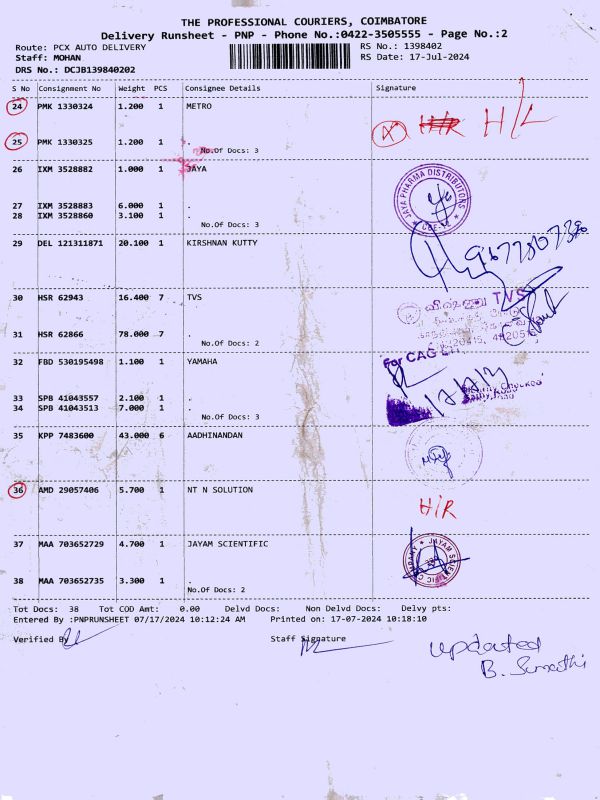 THE PROFESSIONAL COURIERS, COIMBATORE
Delivery Runsheet - PNP - Phone No.:0422-3505555 - Page No.:2
Route: PCX AUTO DELIVERY RS No.: 1398402
Staff: MOHAN RS Date: 17-Jul-2024
DRS No.: DCJB139840202
S No Consignment No Weight PCS Consignee Details Signature
24 PMK 1330324 1.200 1 METRO
H/L
25 PMK 1330325 1.200 1 .
No.Of Docs: 3
26 IXM 3528882 1.000 1 JAYA
JAYA PHARMA DISTRIBUTORS
27 IXM 3528883 6.000 1 .
28 IXM 3528860 3.100 1 .
No.Of Docs: 3
29 DEL 121311871 20.100 1 KIRSHNAN KUTTY
30 HSR 62943 16.400 7 TVS
TVS
31 HSR 62866 78.000 7 .
No.Of Docs: 2
32 FBD 530195498 1.100 1 YAMAHA
For CAG
33 SPB 41043557 2.100 1 .
34 SPB 41043513 7.000 1 .
No.Of Docs: 3
35 KPP 7483600 43.000 6 AADHINANDAN
36 AMD 29057406 5.700 1 NT N SOLUTION
H/R
37 MAA 703652729 4.700 1 JAYAM SCIENTIFIC
JAYAM SCIENTIFIC COMPANY
38 MAA 703652735 3.300 1 .
No.Of Docs: 2
Tot Docs: 38 Tot COD Amt: 0.00 Delvd Docs: Non Delvd Docs: Delvy pts:
Entered By :PNPRUNSHEET 07/17/2024 10:12:24 AM Printed on: 17-07-2024 10:18:10
Verified By Staff Signature
updated
B. Sumathi